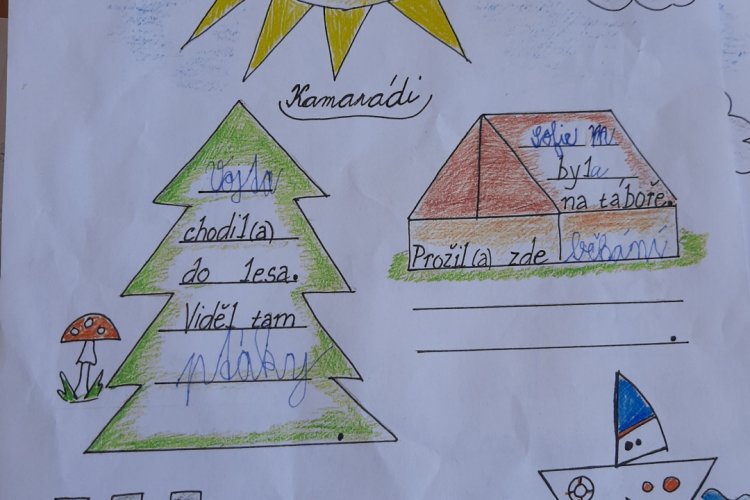 Kamarádi
Vojta
chodil(a)
do lesa.
Viděl tam
ptáky.
Sofie M
byla
na táboře.
Prožil(a) zde běhání